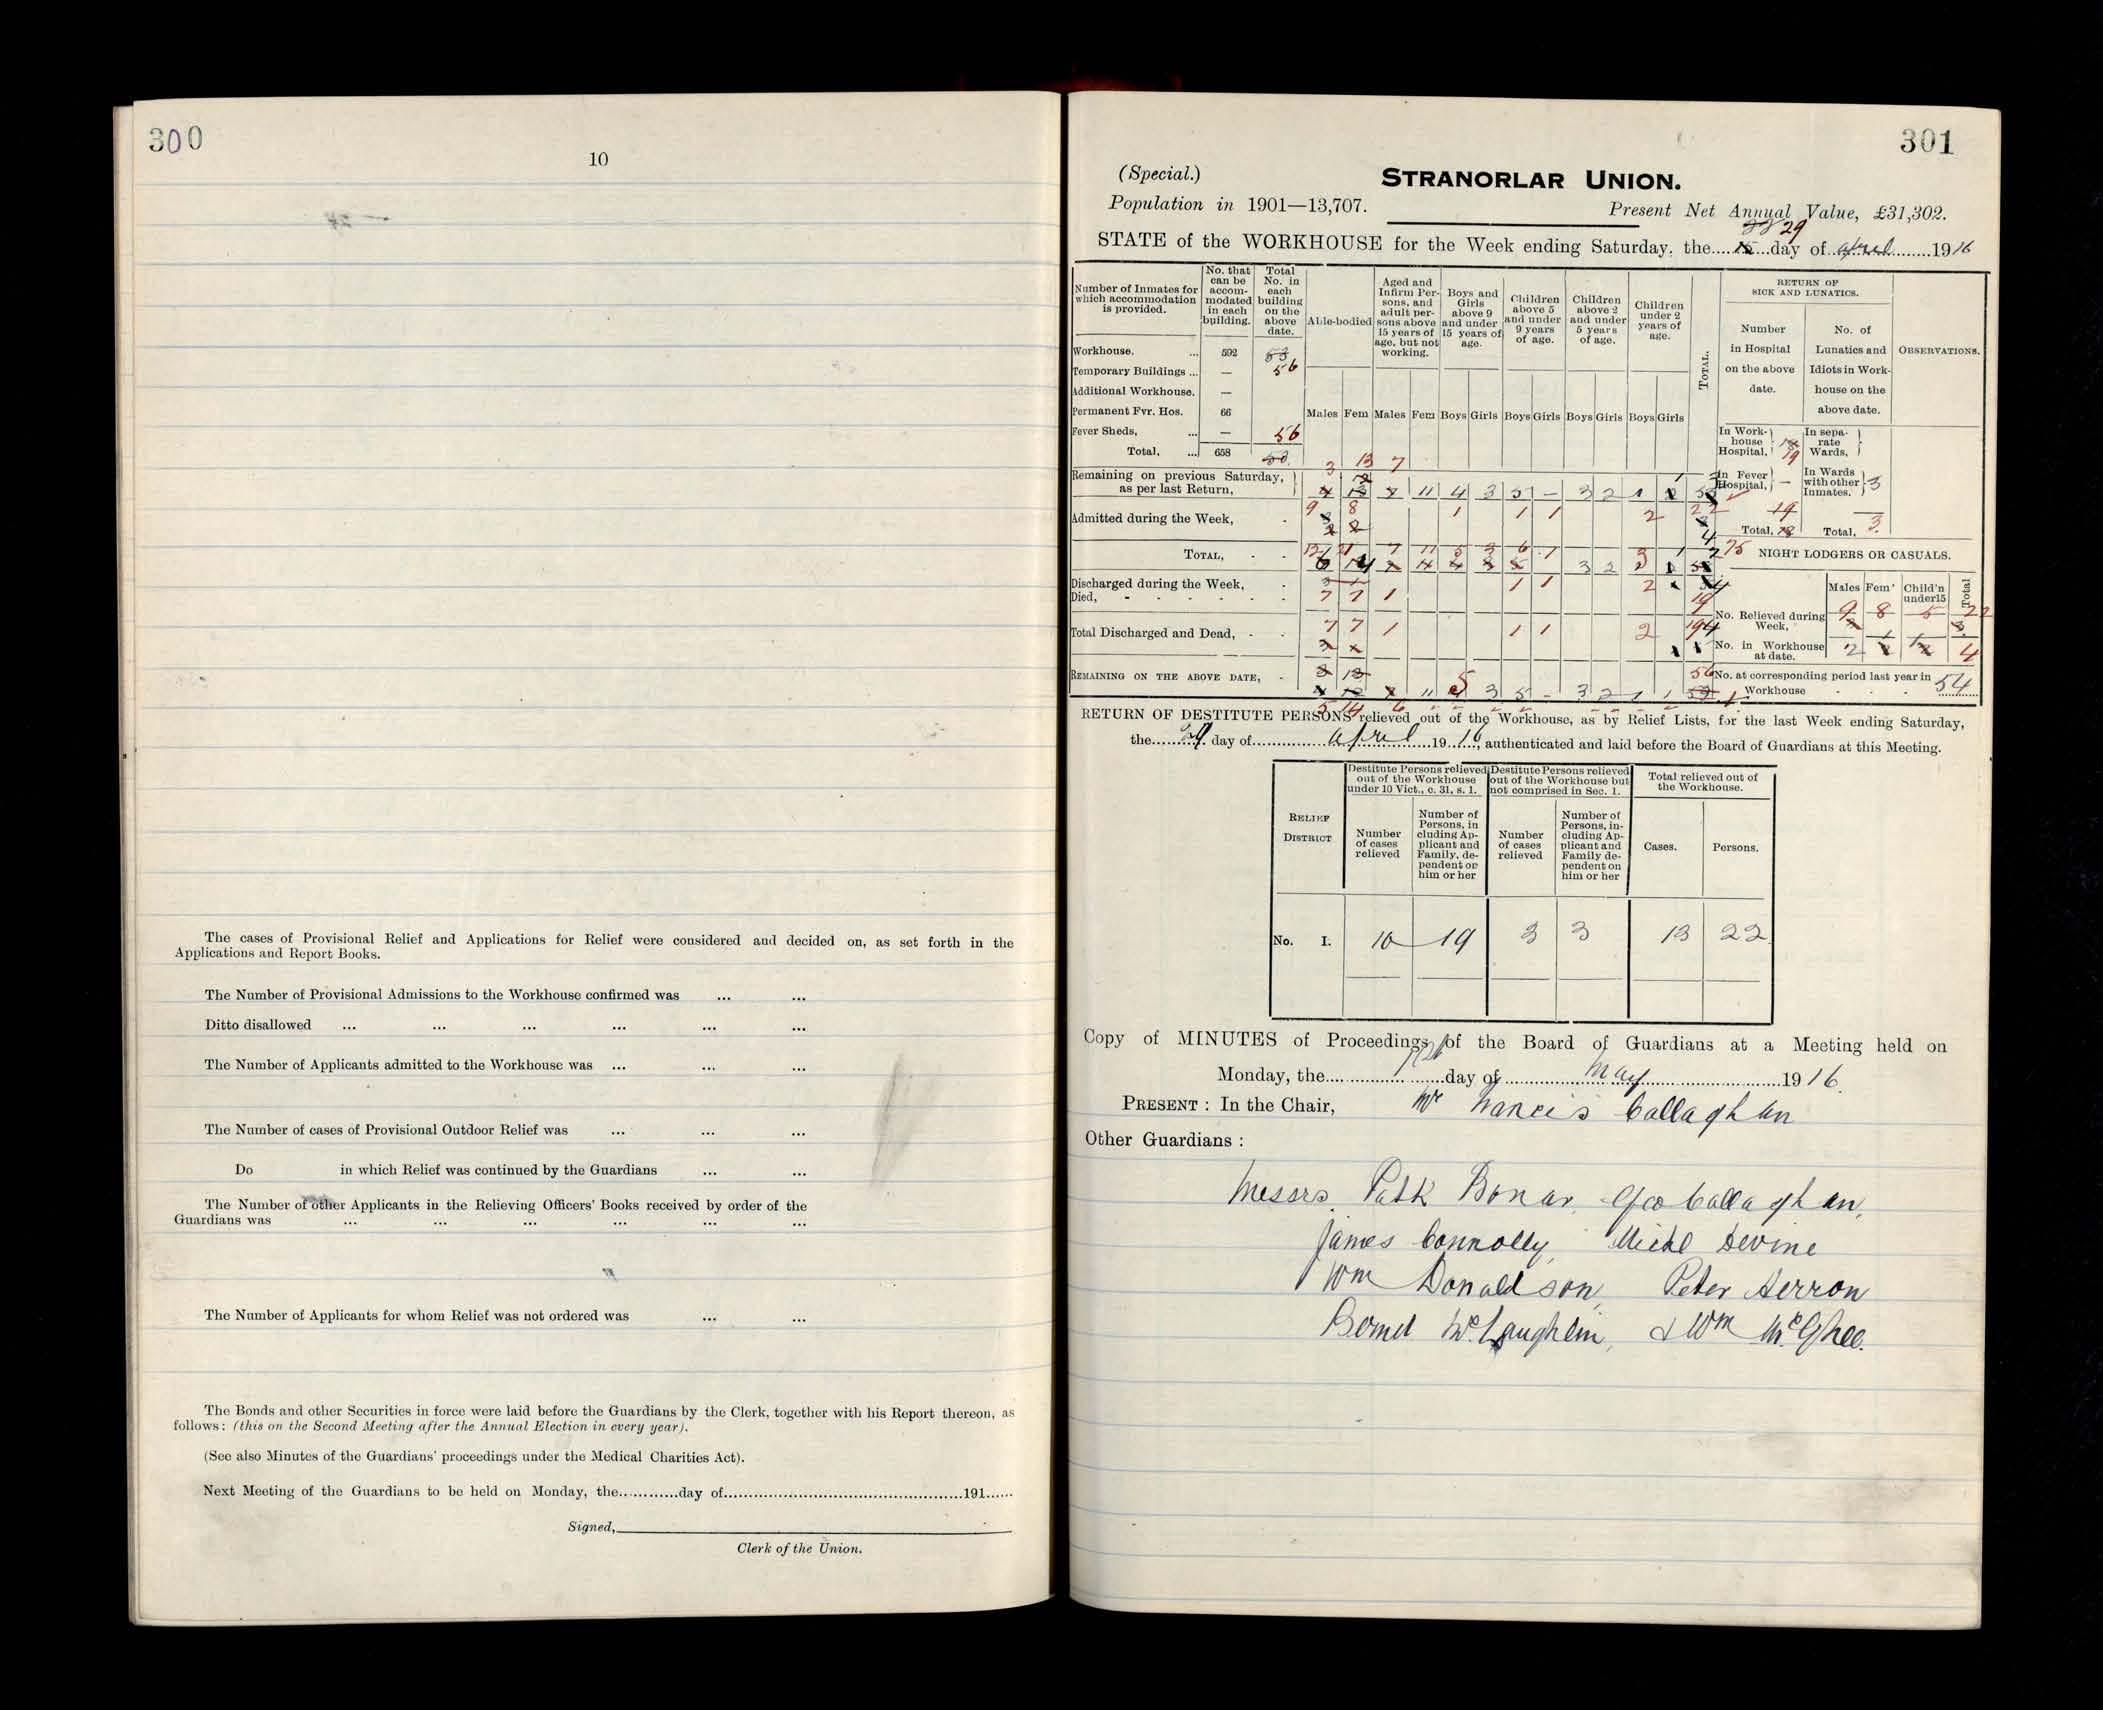 300
10
The cases of Provisional Relief and Applications for Relief were considered and decided on, as set forth in the
Applications and Report Books.
The Number of Provisional Admissions to the Workhouse confirmed was ... ...
Ditto disallowed ... ... ... ... ... ...
The Number of Applicants admitted to the Workhouse was ... ... ...
The Number of cases of Provisional Outdoor Relief was ... ... ...
Do in which Relief was continued by the Guardians ... ...
The Number of other Applicants in the Relieving Officers' Books received by order of the
Guardians was ... ... ... ... ... ...
The Number of Applicants for whom Relief was not ordered was ... ...
The Bonds and other Securities in force were laid before the Guardians by the Clerk, together with his Report thereon, as
follows: (this on the Second Meeting after the Annual Election in every year).
(See also Minutes of the Guardians' proceedings under the Medical Charities Act).
Next Meeting of the Guardians to be held on Monday, the............day of................................................191......
Signed,
Clerk of the Union.
301
(Special.)
STRANORLAR UNION.
Population in 1901—13,707.
Present Net Annual Value, £31,302.
STATE of the WORKHOUSE for the Week ending Saturday, the 29 day of april 1916
Number of Inmates for which accommodation is provided.
No. that can be accommodated in each building.
Total No. in each building on the above date.
Able-bodied
Aged and Infirm Persons, and adult persons above 15 years of age, but not working.
Boys and Girls above 9 and under 15 years of age.
Children above 5 and under 9 years of age.
Children above 2 and under 5 years of age.
Children under 2 years of age.
TOTAL.
RETURN OF SICK AND LUNATICS.
Number in Hospital on the above date.
No. of Lunatics and Idiots in Workhouse on the above date.
OBSERVATIONS.
Workhouse. ... 592 53 56
Temporary Buildings ... —
Additional Workhouse. —
Permanent Fvr. Hos. 66
Fever Sheds, ... — 56
Total, ... 658 53
Males Fem Males Fem Boys Girls Boys Girls Boys Girls Boys Girls
In Workhouse Hospital, 19
In separate Wards,
In Fever Hospital, —
In Wards with other Inmates. 3
Total, 19 Total, 3
Remaining on previous Saturday, as per last Return, 3 13 7 11 4 3 5 — 3 2 1 1 53
Admitted during the Week, 9 8 1 1 1 2 22
TOTAL, 12 21 7 11 5 3 6 1 3 2 3 1 75
Discharged during the Week, 7 7 1 1 1 2 19
Died,
Total Discharged and Dead, 7 7 1 1 1 2 19
REMAINING ON THE ABOVE DATE, 5 14 6 11 5 3 5 - 3 2 1 1 56
NIGHT LODGERS OR CASUALS.
Males Fem' Child'n under 15 Total
No. Relieved during Week, 9 8 5 22
No. in Workhouse at date. 2 1 1 4
No. at corresponding period last year in Workhouse 54
RETURN OF DESTITUTE PERSONS relieved out of the Workhouse, as by Relief Lists, for the last Week ending Saturday,
the 29 day of april 1916, authenticated and laid before the Board of Guardians at this Meeting.
RELIEF DISTRICT
Destitute Persons relieved out of the Workhouse under 10 Vict., c. 31, s. 1.
Destitute Persons relieved out of the Workhouse but not comprised in Sec. 1.
Total relieved out of the Workhouse.
Number of cases relieved
Number of Persons, including Applicant and Family, dependent on him or her
Number of cases relieved
Number of Persons, including Applicant and Family dependent on him or her
Cases. Persons.
No. I. 10 19 3 3 13 22
Copy of MINUTES of Proceedings of the Board of Guardians at a Meeting held on
Monday, the 1st day of May 1916.
PRESENT: In the Chair, Mr Francis Callaghan
Other Guardians:
Messrs. Patk Bonar, Geo Callaghan,
James Connolly, Michl Devine
Wm Donaldson, Peter Herron
Bernd McLaughlin, & Wm McGhee.